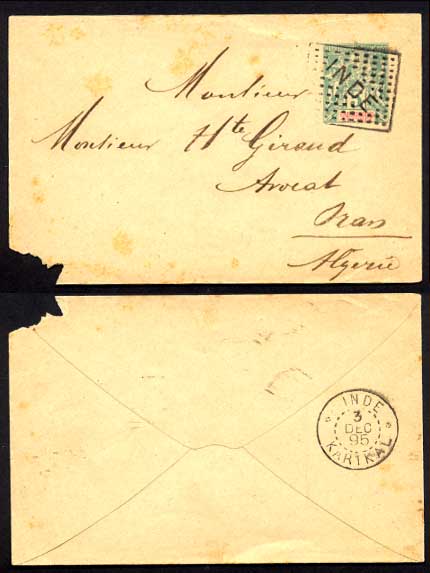 INDE
Monsieur
Monsieur Hte Giraud
Avocat
Oran
Algérie
INDE
3
DEC
95
KARIKAL